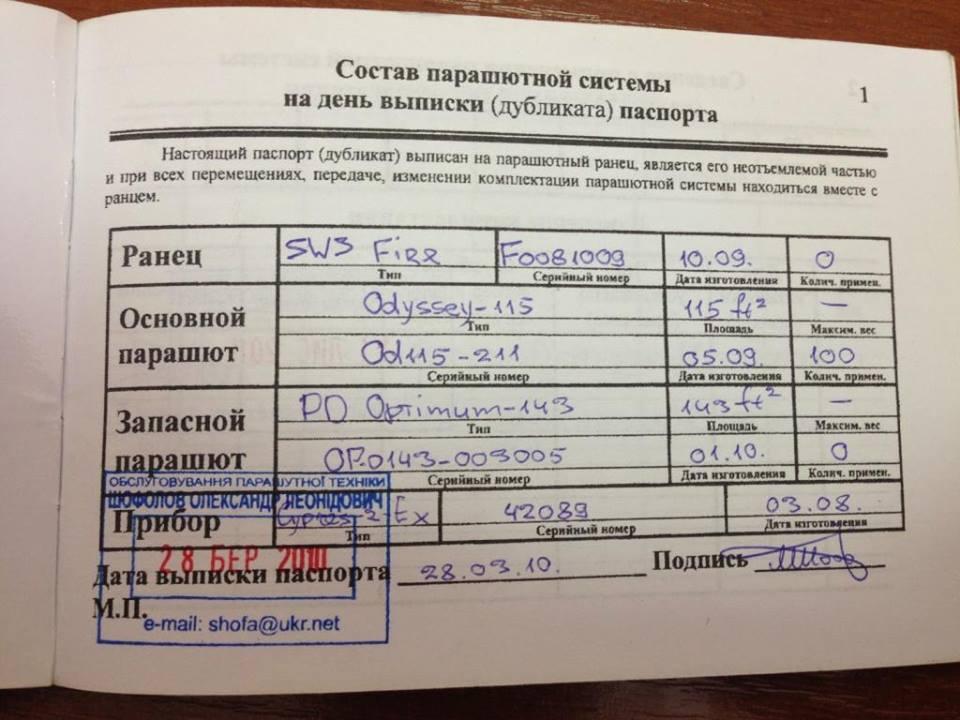 Состав парашютной системы
1
на день выписки (дубликата) паспорта
Настоящий паспорт (дубликат) выписан на парашютный ранец, является его неотъемлемой частью
и при всех перемещениях, передаче, изменении комплектации парашютной системы находиться вместе с
ранцем.
Ранец SW3 Fire F0081009 10.09. 0
Тип Серийный номер Дата изготовления Колич. примен.
Основной парашют
Odyssey-115 115 ft² —
Тип Площадь Максим. вес
Od115-211 05.09. 100
Серийный номер Дата изготовления Колич. примен.
Запасной парашют
PD Optimum-143 143 ft² —
Тип Площадь Максим. вес
OP-0143-003005 01.10. 0
Серийный номер Дата изготовления Колич. примен.
ОБСЛУГОВУВАННЯ ПАРАШУТНОЇ ТЕХНІКИ
ШОФОЛОВ ОЛЕКСАНДР ЛЕОНІДОВИЧ
Прибор Cypres-2 Ex 42089 03.08.
Тип Серийный номер Дата изготовления
28 БЕР 2010
Дата выписки паспорта 28.03.10. Подпись
М.П.
e-mail: shofa@ukr.net